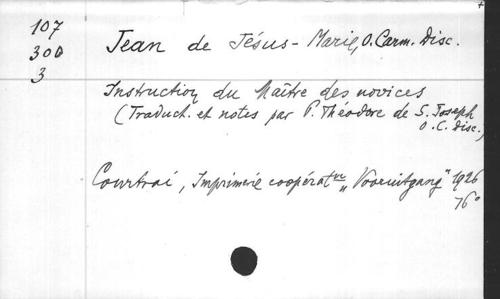 107
300
3
Jean de Jésus-Marie, O. Carm. Disc.
Instruction du Maître des novices
(Traduct. et notes par P. Théodore de S. Joseph
O.C. Disc.)
Courtrai, Imprimerie coopératve „Vooruitgang" 1926
76°